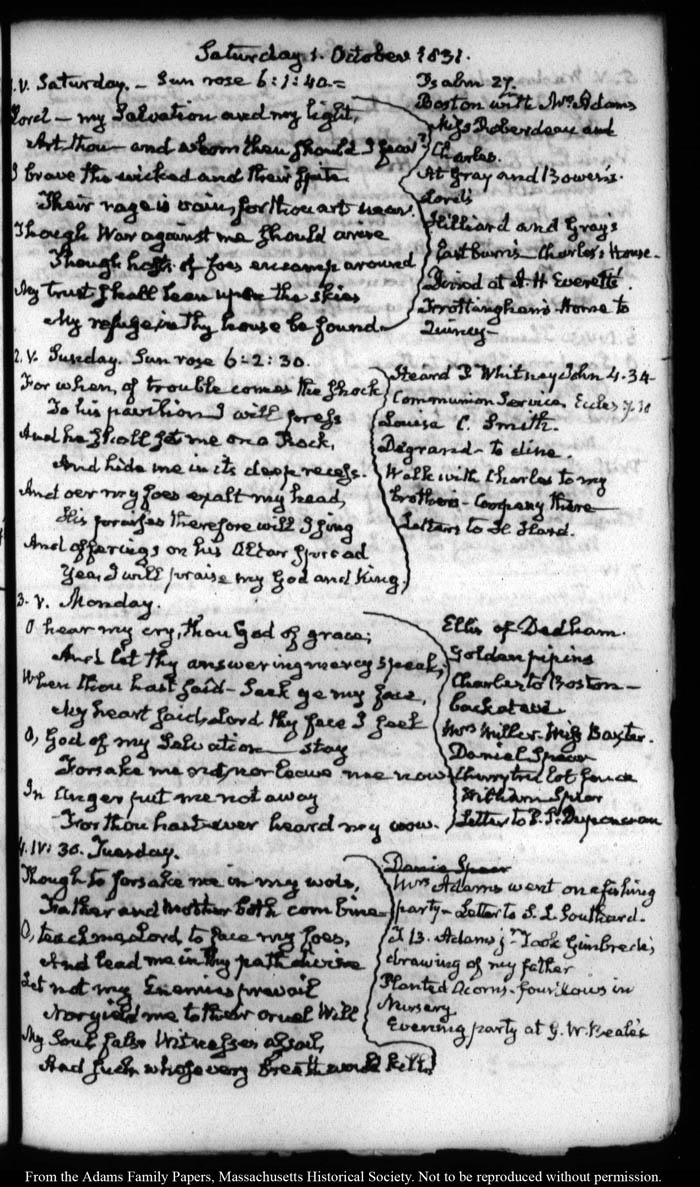 Saturday 1. October 1831.
1. V. Saturday. - Sun rose 6:1:40.
Lord - my Salvation and my light,
Art thou - and whom then should I fear?
I brave the wicked and their spite
Their rage is vain, for thou art near.
Though War against me should arise
Though hosts of foes encamp around
My trust shall lean upon the skies
My refuge in thy house be found.
Psalm 27.
Boston with Mrs. Adams
Miss Roberdeau and
Charles.
At Gray and Bowen's.
Lord's
Hilliard and Gray's
Eastburn's - Charles's House -
Dined at A. H Everett's.
Frothingham's Home to
Quincy -
2. V. Sunday. Sun rose 6:2:30.
For when, of trouble comes the shock
To his pavilion I will press
And he shall set me on a Rock,
And hide me in its deep recess.
And oer my foes exalt my head,
His praises therefore will I sing
And offerings on his Altar spread
Yea, I will praise my God and King.
Heard P. Whitney John 4. 34
Communion Service. Eccles
Louisa C. Smith.
Degrand - to dine.
Walk with Charles to my
brother's - Company there
Letters to
3. V. Monday.
O hear my cry, thou God of grace;
And let thy answering mercy speak;
When thou hast said - Seek ye my face,
My heart said, Lord thy face I seek
O, God of my Salvation - stay
Forsake me not, nor leave me now
In Anger put me not away
For thou hast ever heard my vow.
Ellis of Dedham.
Golden pipins
Charles to Boston -
back at eve.
Mrs Miller. Miss Baxter.
Daniel Spear
Cherry tree lot fence
William Spear
Letter to P. S. Duponceau
4. IV: 30. Tuesday.
Though to forsake me in my woes,
Father and Mother both combine
O, teach me Lord, to face my foes,
And lead me in thy path divine
Let not my Enemies prevail
Nor yield me to their cruel Will
My Soul false Witnesses assail,
And such whose very breath would kill.
Daniel Spear
Mrs Adams went on a fishing
party - Letter to S. L. Southard.
T. B. Adams jr. Took Gimbrede's
drawing of my father
Planted Acorns - four rows in
Nursery
Evening party at G. W. Beale's
From the Adams Family Papers, Massachusetts Historical Society. Not to be reproduced without permission.